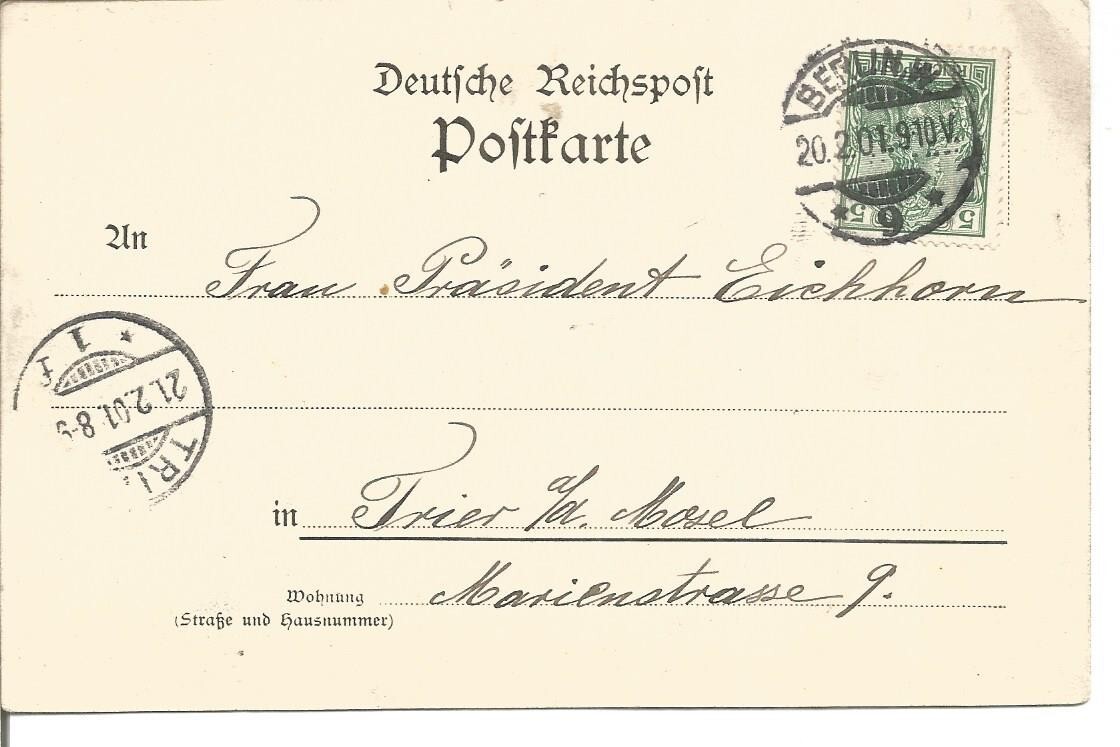 Deutsche Reichspost
Postkarte
BERLIN.W.
20.2.01.910V.
* 9 *
5 5
An Frau Präsident Eichhorn
* 1
21.2.01.8-9
TRI
in Trier a/d. Mosel
Wohnung Marienstrasse 9.
(Straße und Hausnummer)